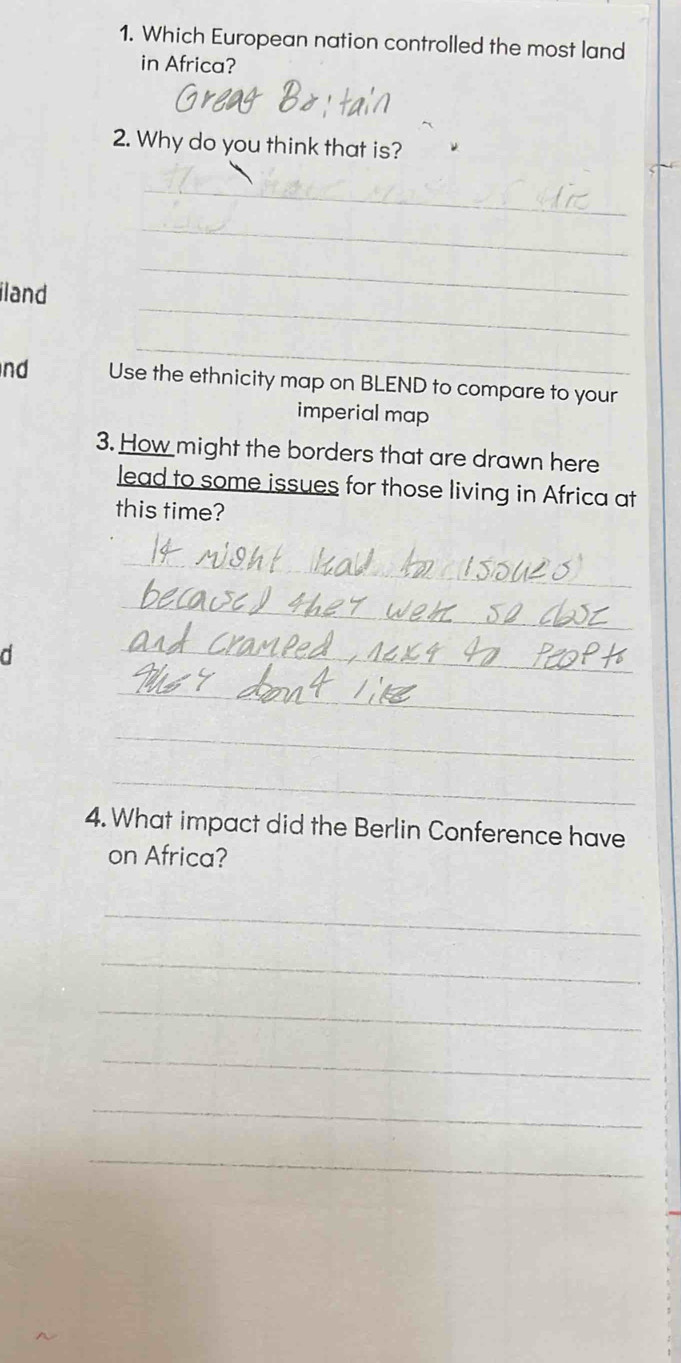 1. Which European nation controlled the most land
in Africa?
Great Britain
2. Why do you think that is?
iland
nd
Use the ethnicity map on BLEND to compare to your
imperial map
3. How might the borders that are drawn here
lead to some issues for those living in Africa at
this time?
It might lead to issues
because they were so close
and cramped, next to People
d
they don't like
4. What impact did the Berlin Conference have
on Africa?